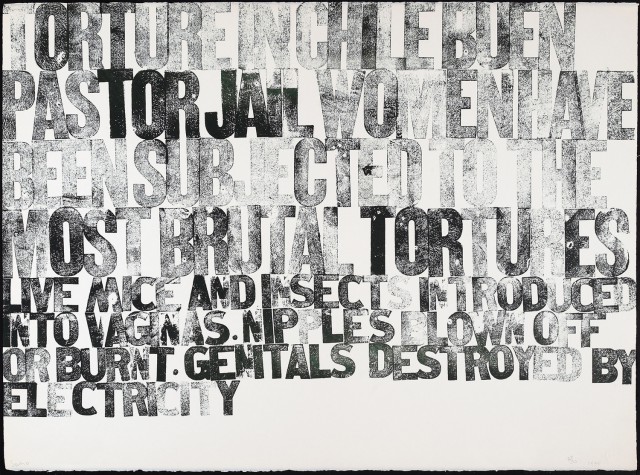 TORTURE IN CHILE BUEN
PASTOR JAIL WOMEN HAVE
BEEN SUBJECTED TO THE
MOST BRUTAL TORTURES
LIVE MICE AND INSECTS INTRODUCED
INTO VAGINAS. NIPPLES BLOWN OFF
OR BURNT. GENITALS DESTROYED BY
ELECTRICITY